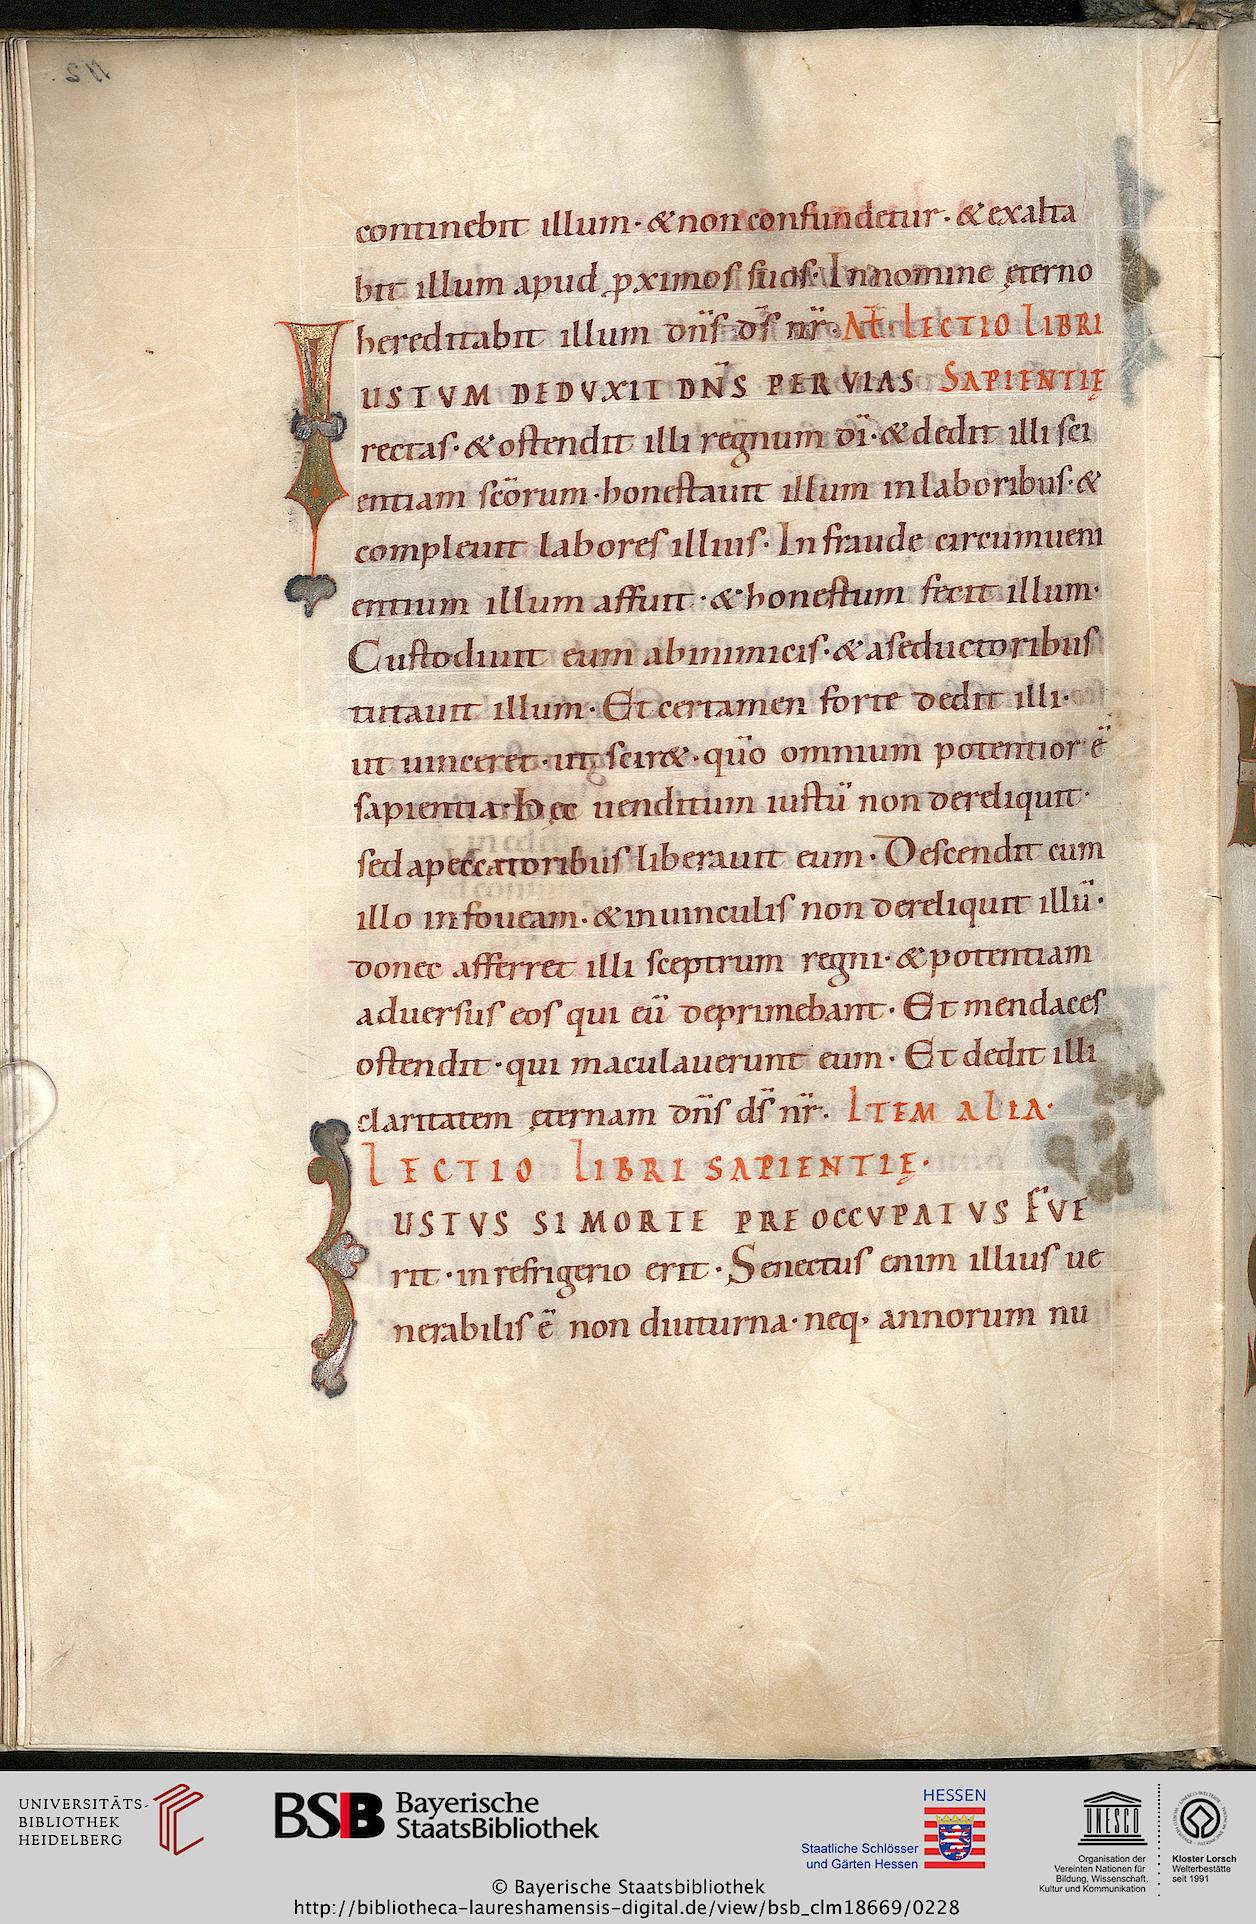 112.
continebit illum · & non confundetur · & exalta
bit illum apud ꝓximos suos · In nomine ęterno
hereditabit illum dn̄s ds̄ nr̄ · AƗ LECTIO LIBRI
IUSTUM DEDUXIT DN̄S PER VIAS SAPIENTIĘ
rectas · & ostendit illi regnum dī · & dedit illi sci
entiam scōrum · honestauit illum in laboribus · &
compleuit labores illius · In fraude circumueni
entium illum affuit · & honestum fecit illum ·
Custodiuit eum ab inimicis · & a seductoribus
tutauit illum · Et certamen forte dedit illi ·
ut uinceret · ut scir& · qūo omnium potentior ē
sapientia · Hęc uenditum iustū non dereliquit ·
sed a peccatoribus liberauit eum · Descendit cum
illo in foueam · & in uinculis non dereliquit illū ·
donec afferret illi sceptrum regni · & potentiam
aduersus eos qui eū deprimebant · Et mendaces
ostendit · qui maculauerunt eum · Et dedit illi
claritatem ęternam dn̄s ds̄ nr̄ · ITEM ALIA ·
LECTIO LIBRI SAPIENTIĘ ·
IUSTUS SI MORTE PREOCCUPATUS FUE
rit · in refrigerio erit · Senectus enim illius ue
nerabilis ē non diuturna · neq; annorum nu
UNIVERSITÄTS-
BIBLIOTHEK
HEIDELBERG
BSB Bayerische
StaatsBibliothek
HESSEN
Staatliche Schlösser
und Gärten Hessen
UNESCO
Organisation der
Vereinten Nationen für
Bildung, Wissenschaft,
Kultur und Kommunikation
Kloster Lorsch
Welterbestätte
seit 1991
© Bayerische Staatsbibliothek
http://bibliotheca-laureshamensis-digital.de/view/bsb_clm18669/0228